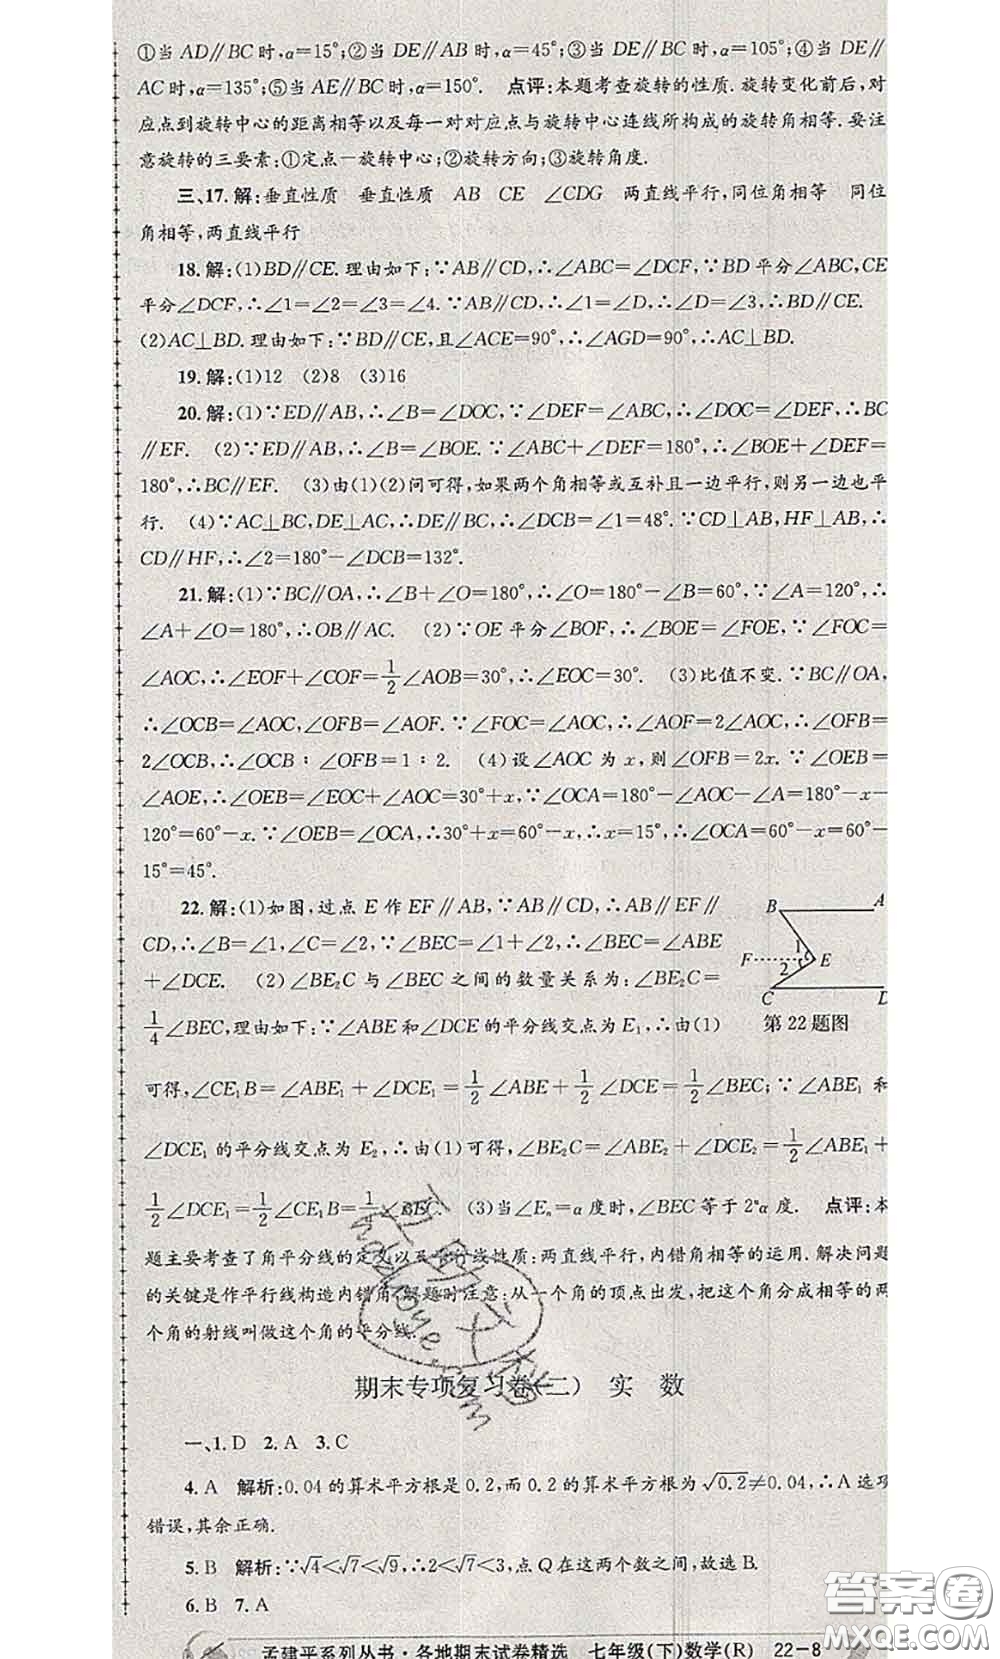 ①当 AD∥BC 时,α=15°;②当 DE∥AB 时,α=45°;③当 DE∥BC 时,α=105°;④当 DE∥
AC 时,α=135°;⑤当 AE∥BC 时,α=150°. 点评:本题考查旋转的性质.旋转变化前后,对
应点到旋转中心的距离相等以及每一对对应点与旋转中心连线所构成的旋转角相等.要注
意旋转的三要素:①定点一旋转中心;②旋转方向;③旋转角度.
三、17.解:垂直性质 垂直性质 AB CE ∠CDG 两直线平行,同位角相等 同位
角相等,两直线平行
18.解:(1)BD∥CE.理由如下:∵AB∥CD,∴∠ABC=∠DCF,∵BD 平分∠ABC,CE
平分∠DCF,∴∠1=∠2=∠3=∠4.∵AB∥CD,∴∠1=∠D,∴∠D=∠3,∴BD∥CE.
(2)AC⊥BD.理由如下:∵BD∥CE,且∠ACE=90°,∴∠AGD=90°,∴AC⊥BD.
19.解:(1)12 (2)8 (3)16
20.解:(1)∵ED∥AB,∴∠B=∠DOC,∵∠DEF=∠ABC,∴∠DOC=∠DEF,∴BC
∥EF. (2)∵ED∥AB,∴∠B=∠BOE.∵∠ABC+∠DEF=180°,∴∠BOE+∠DEF=
180°,∴BC∥EF. (3)由(1)(2)问可得,如果两个角相等或互补且一边平行,则另一边也平
行. (4)∵AC⊥BC,DE⊥AC,∴DE∥BC,∴∠DCB=∠1=48°.∵CD⊥AB,HF⊥AB,∴
CD∥HF,∴∠2=180°-∠DCB=132°.
21.解:(1)∵BC∥OA,∴∠B+∠O=180°,∴∠O=180°-∠B=60°,∵∠A=120°,∴
∠A+∠O=180°,∴OB∥AC. (2)∵OE 平分∠BOF,∴∠BOE=∠FOE,∵∠FOC=
∠AOC,∴∠EOF+∠COF=1/2∠AOB=30°,∴∠EOC=30°. (3)比值不变.∵BC∥OA,
∴∠OCB=∠AOC,∠OFB=∠AOF.∵∠FOC=∠AOC,∴∠AOF=2∠AOC,∴∠OFB=
2∠OCB,∴∠OCB∶∠OFB=1∶2. (4)设∠AOC 为 x,则∠OFB=2x.∵∠OEB=
∠AOE,∴∠OEB=∠EOC+∠AOC=30°+x,∵∠OCA=180°-∠AOC-∠A=180°-x-
120°=60°-x.∵∠OEB=∠OCA,∴30°+x=60°-x,∴x=15°,∴∠OCA=60°-x=60°-
15°=45°.
22.解:(1)如图,过点 E 作 EF∥AB,∵AB∥CD,∴AB∥EF∥
CD,∴∠B=∠1,∠C=∠2,∵∠BEC=∠1+∠2,∴∠BEC=∠ABE
+∠DCE. (2)∠BE₂C 与∠BEC 之间的数量关系为:∠BE₂C=
1/4∠BEC,理由如下:∵∠ABE 和∠DCE 的平分线交点为 E₁,∴由(1)
B A
1
F 2 E
C D
第 22 题图
可得,∠CE₁B=∠ABE₁+∠DCE₁=1/2∠ABE+1/2∠DCE=1/2∠BEC;∵∠ABE₁ 和
∠DCE₁ 的平分线交点为 E₂,∴由(1)可得,∠BE₂C=∠ABE₂+∠DCE₂=1/2∠ABE₁+
1/2∠DCE₁=1/2∠CE₁B=1/4∠BEC. (3)当∠Eₙ=α度时,∠BEC 等于 2ⁿα度. 点评:本
题主要考查了角平分线的定义以及平行线性质:两直线平行,内错角相等的运用.解决问题
的关键是作平行线构造内错角,解题时注意:从一个角的顶点出发,把这个角分成相等的两
个角的射线叫做这个角的平分线.
期末专项复习卷(二) 实 数
一、1.D 2.A 3.C
4.A 解析:0.04 的算术平方根是 0.2,而 0.2 的算术平方根为√0.2≠0.04,∴A 选项
错误,其余正确.
5.B 解析:∵√4<√7<√9,∴2<√7<3,点 Q 在这两个数之间,故选 B.
6.B 7.A
孟建平系列丛书·各地期末试卷精选 七年级(下)数学(R) 22-8
答案卷